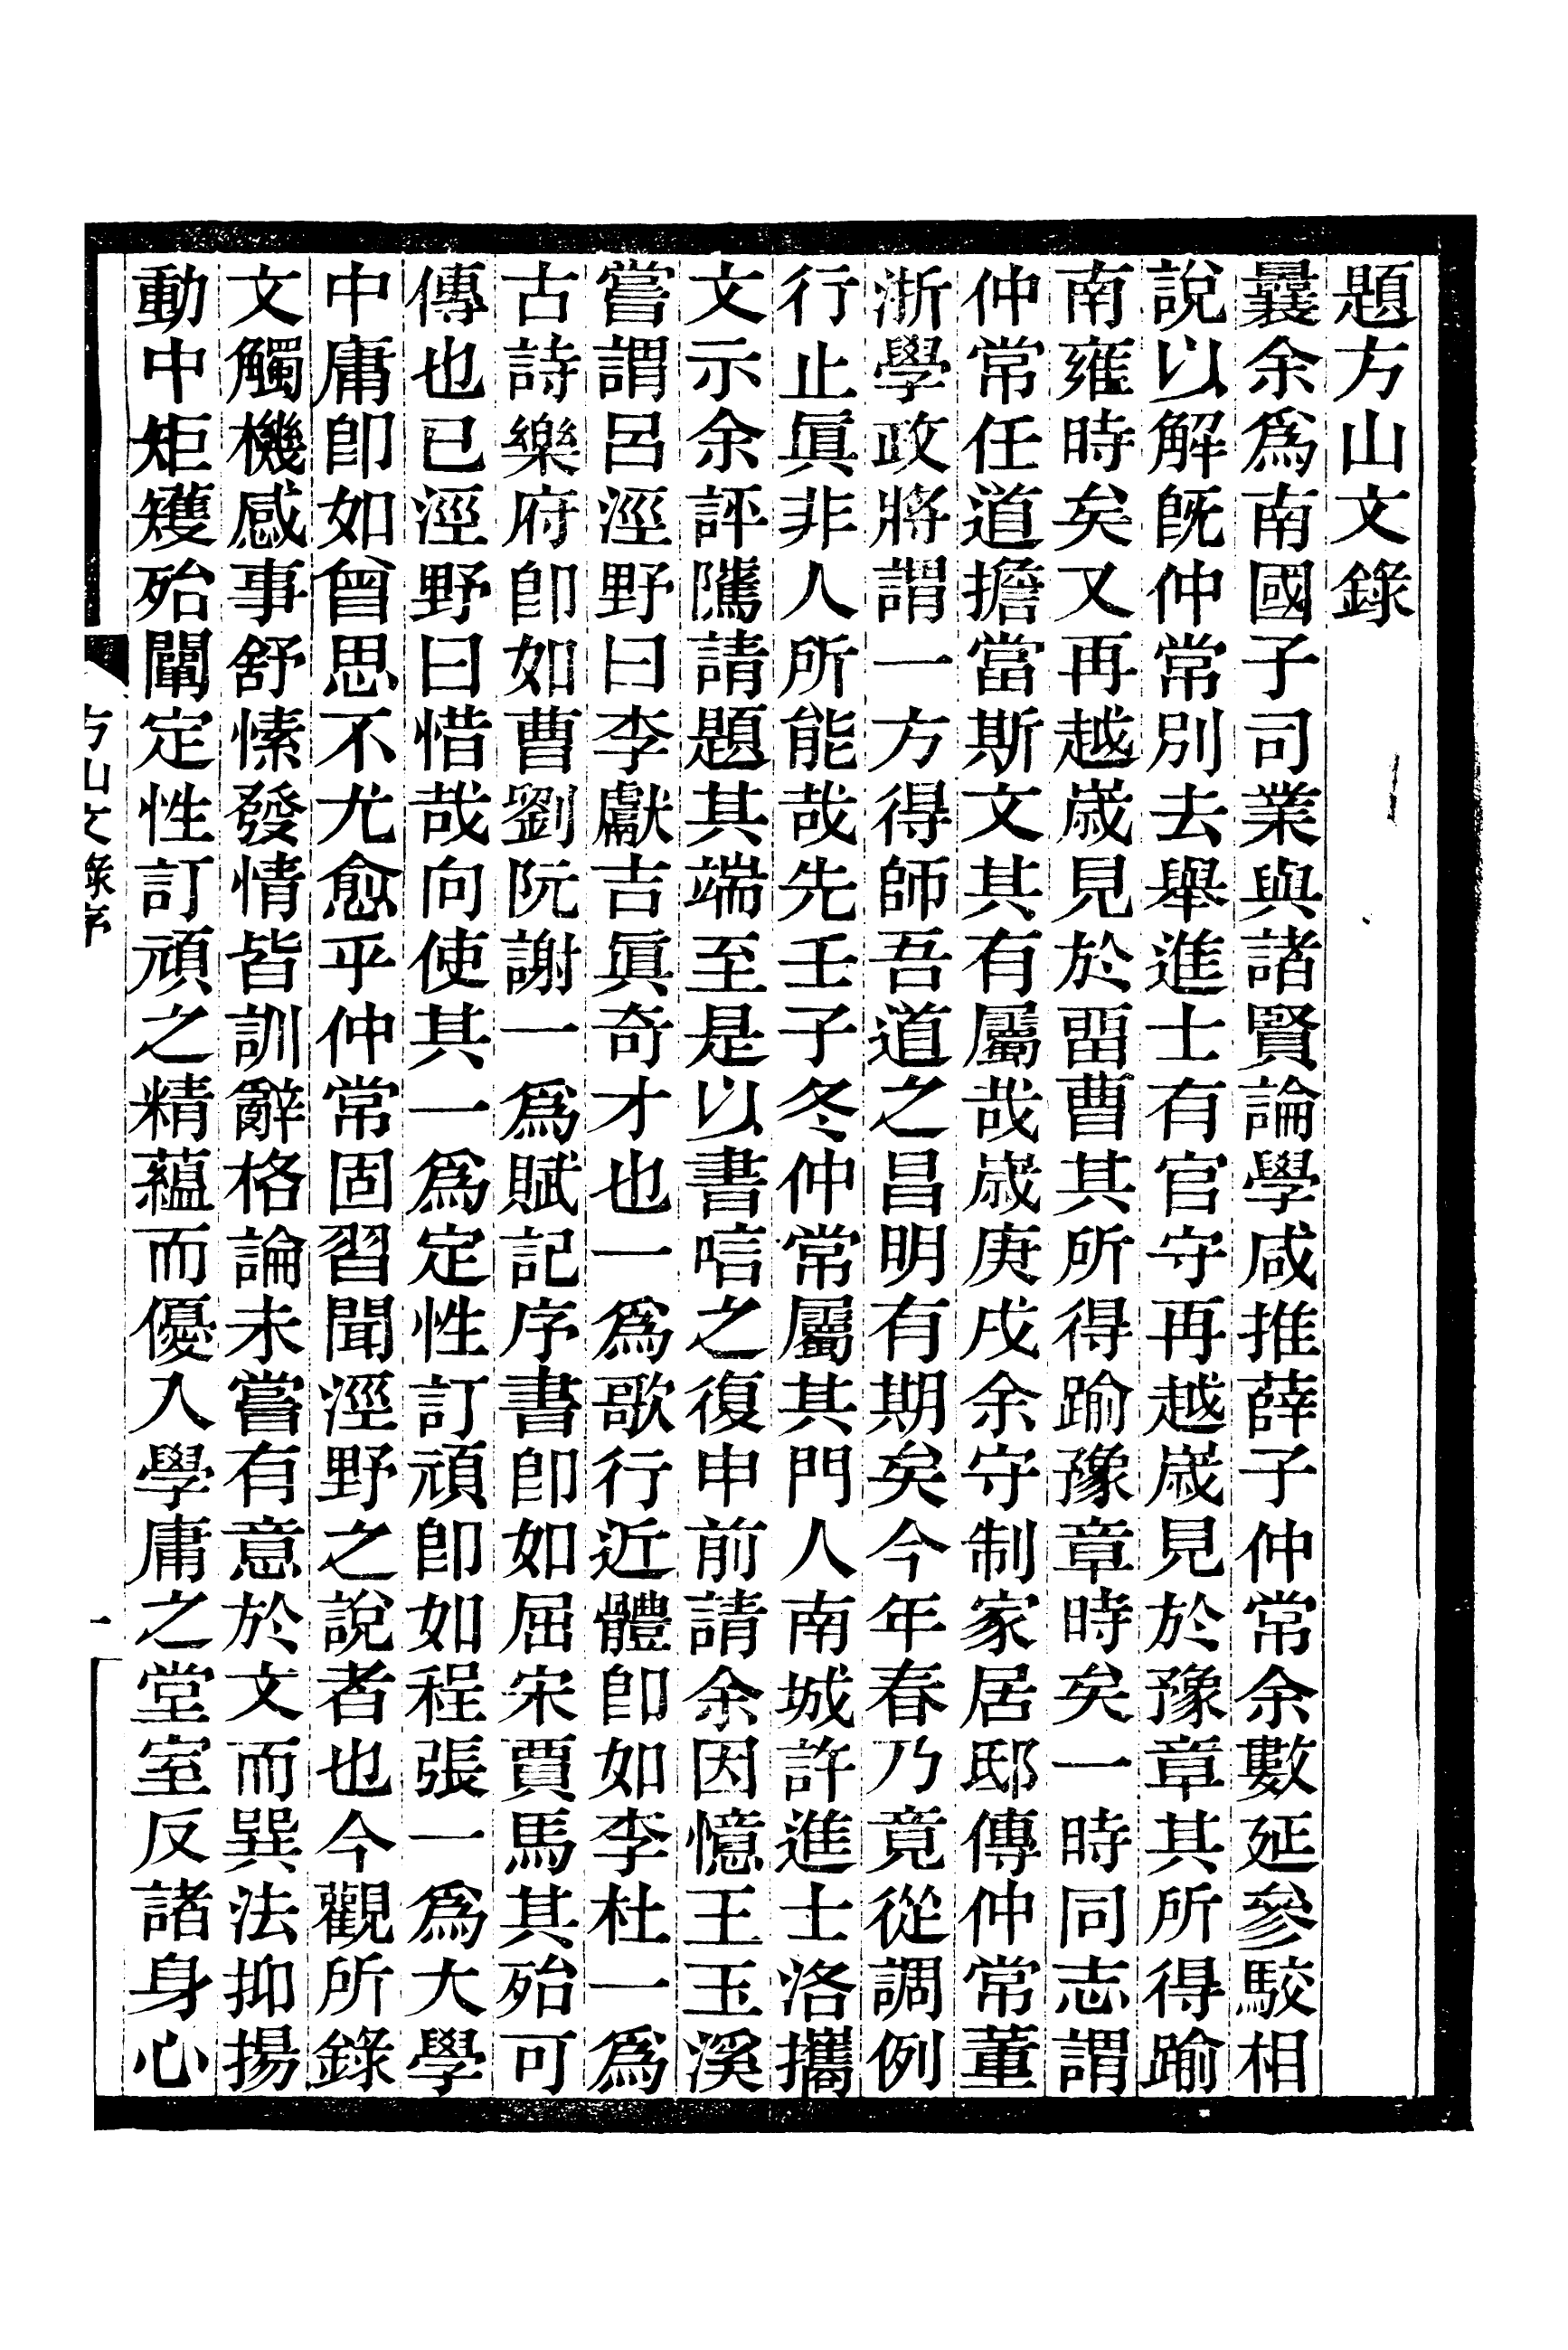 題方山文錄
曩余爲南國子司業與諸賢論學咸推薛子仲常余數延參駮相
說以解旣仲常別去舉進士有官守再越歲見於豫章其所得踰
南雍時矣又再越歲見於畱曹其所得踰豫章時矣一時同志謂
仲常任道擔當斯文其有屬哉歲庚戌余守制家居邸傳仲常董
浙學政將謂一方得師吾道之昌明有期矣今年春乃竟從調例
行止眞非人所能哉先壬子冬仲常屬其門人南城許進士洛攜
文示余評隲請題其端至是以書唁之復申前請余因憶王玉溪
嘗謂呂涇野曰李獻吉眞奇才也一爲歌行近體卽如李杜一爲
古詩樂府卽如曹劉阮謝一爲賦記序書卽如屈宋賈馬其殆可
傳也已涇野曰惜哉向使其一爲定性訂頑卽如程張一爲大學
中庸卽如曾思不尤愈乎仲常固習聞涇野之說者也今觀所錄
文觸機感事舒愫發情皆訓辭格論未嘗有意於文而巽法抑揚
動中矩矱殆闡定性訂頑之精蘊而優入學庸之堂室反諸身心
方山文錄序
一